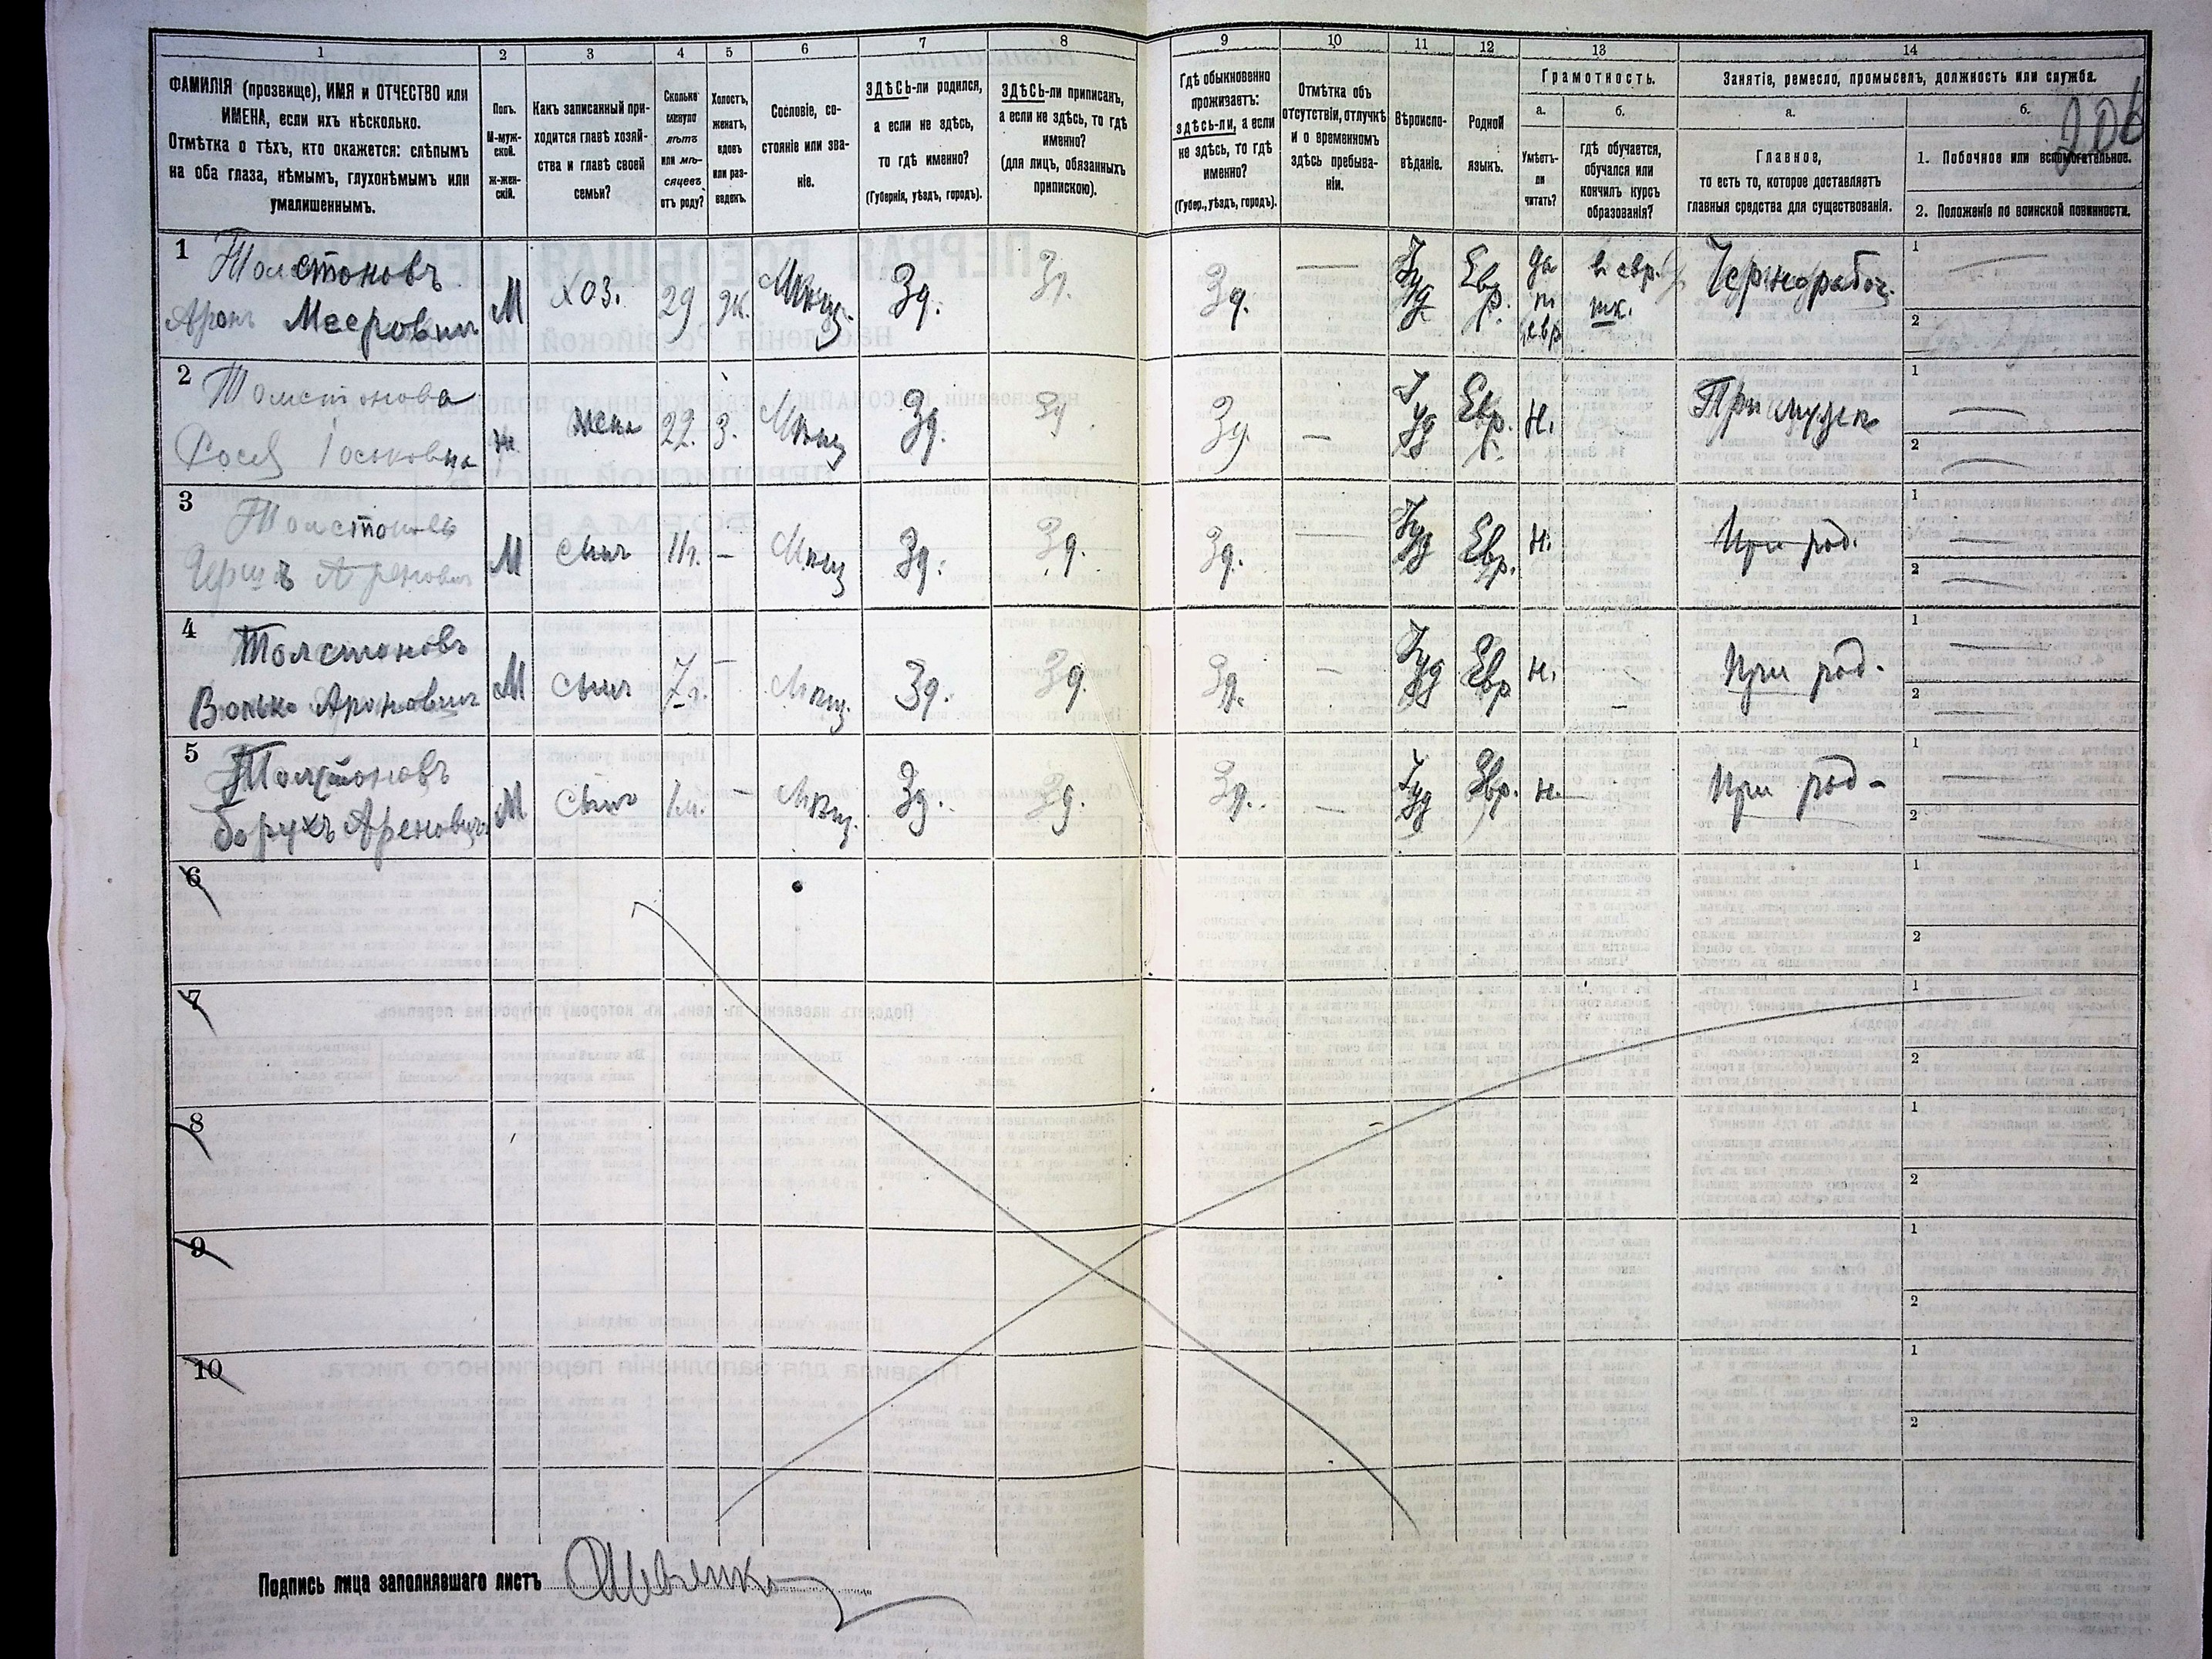 1 2 3 4 5 6 7 8 9 10 11 12 13 14
ФАМИЛІЯ (прозвище), ИМЯ и ОТЧЕСТВО или
ИМЕНА, если ихъ нѣсколько.
Отмѣтка о тѣхъ, кто окажется: слѣпымъ
на оба глаза, нѣмымъ, глухонѣмымъ или
умалишеннымъ.
Полъ.
М-муж-
ской.
Ж-жен-
скій.
Какъ записанный при-
ходится главѣ хозяй-
ства и главѣ своей
семьи?
Сколько
минуло
лѣтъ
или мѣ-
сяцевъ
отъ роду?
Холостъ,
женатъ,
вдовъ
или раз-
веденъ.
Сословіе, со-
стояніе или зва-
ніе.
ЗДѢСЬ-ли родился,
а если не здѣсь,
то гдѣ именно?
(Губернія, уѣздъ, городъ).
ЗДѢСЬ-ли приписанъ,
а если не здѣсь, то гдѣ
именно?
(для лицъ, обязанныхъ
припискою).
Гдѣ обыкновенно
проживаетъ:
здѣсь-ли, а если
не здѣсь, то гдѣ
именно?
(Губер., уѣздъ, городъ).
Отмѣтка объ
отсутствіи, отлучкѣ
и о временномъ
здѣсь пребыва-
ніи.
Вѣроиспо-
вѣданіе.
Родной
языкъ.
Грамотность.
а.
Умѣетъ-
ли
читать?
б.
гдѣ обучается,
обучался или
кончилъ курсъ
образованія?
Занятіе, ремесло, промыселъ, должность или служба.
а.
Главное,
то есть то, которое доставляетъ
главныя средства для существованія.
б.
206
1. Побочное или вспомогательное.
2. Положеніе по воинской повинности.
1 Толстоновъ
Аронъ Мееровичъ
М Хоз. 29 ж. Мѣщ. Зд. Зд. Зд. — Іуд Евр. да Чернорабоч. 1 —
2
2 Толстонова
Іоськовна
ж. жена 22. З. Мѣщ Зд. Зд. Зд. — Іуд Евр. н. При мужѣ 1 —
2 —
3 Толстоновъ
Герш Ароновичъ
М сынъ – Мѣщ Зд. Зд. Зд. — Іуд Евр. н. При род. 1 —
2 —
4 Толстоновъ
Волько Ароновичъ
М сынъ 7 – Мѣщ. Зд. Зд. Зд. — Іуд Евр н. При род. 1 —
2 —
5 Толстоновъ
Борухъ Ароновичъ
М сынъ – Мѣщ. Зд. Зд. Зд. — Іуд Евр. н. При род- 1 —
2 —
6 1
2
7 1
2
8 1
2
9 1
2
10 1
2
Подпись лица заполнявшаго листъ